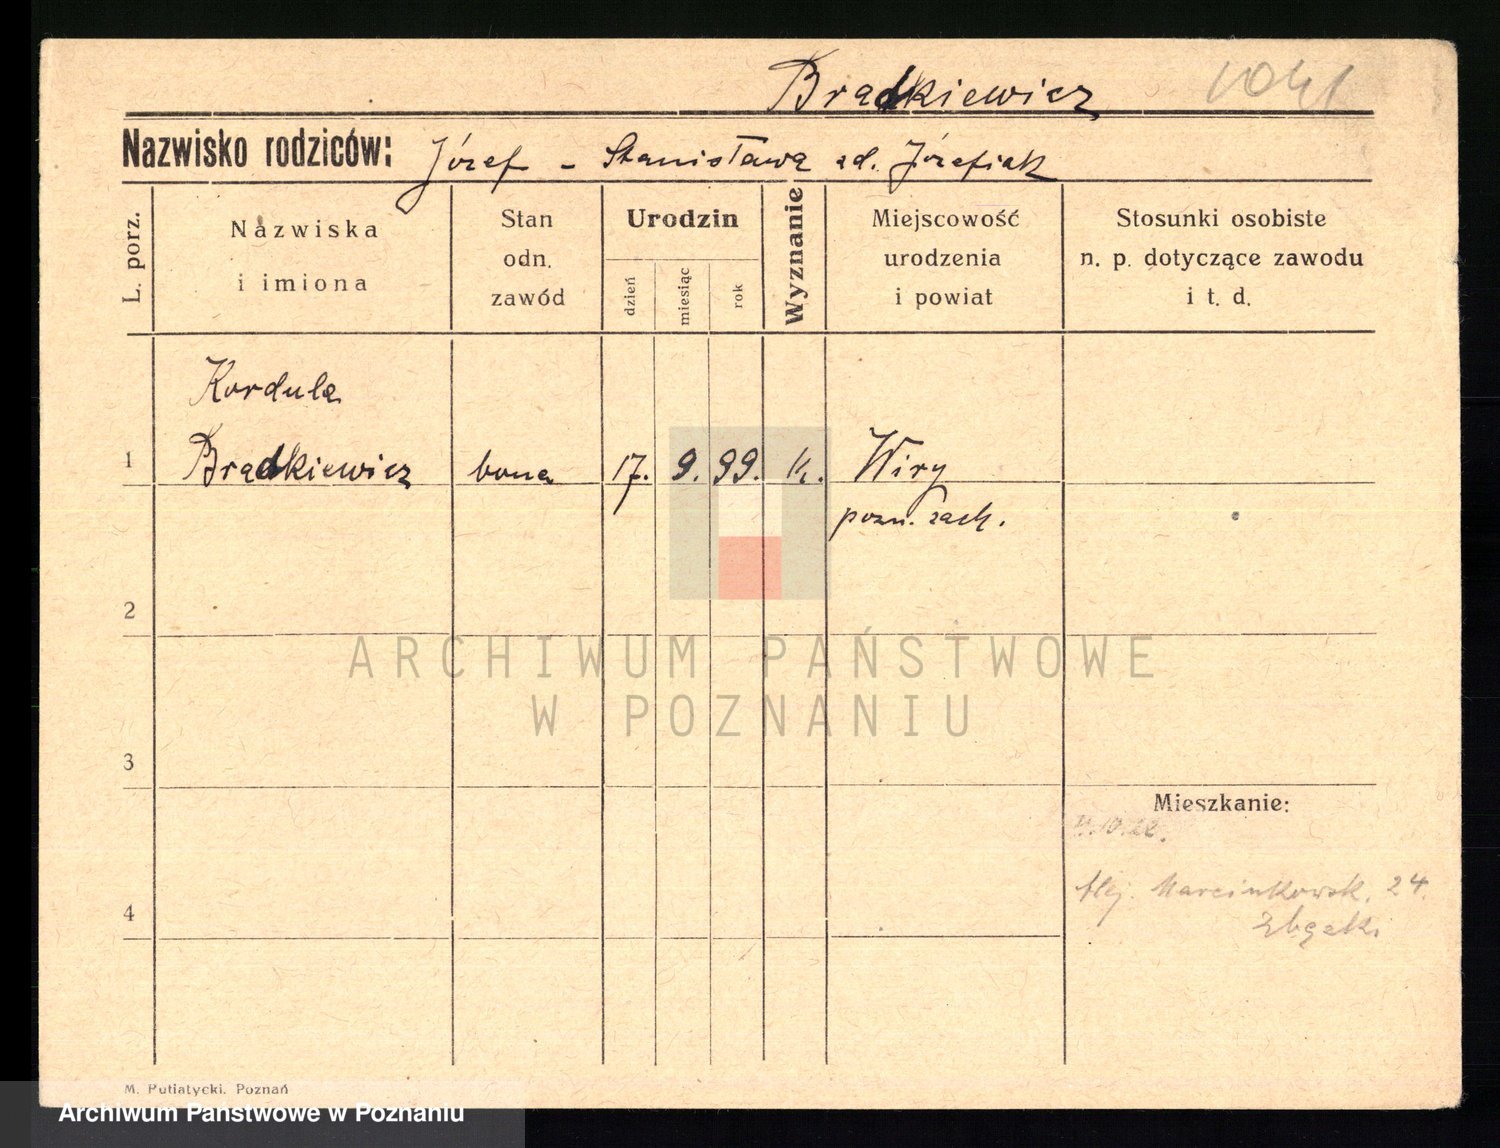 Brądkiewicz
Nazwisko rodziców: Józef - Stanisława zd. Józefiak
L. porz.
Nazwiska
i imiona
Stan
odn.
zawód
Urodzin
dzień
miesiąc
rok
Wyznanie
Miejscowość
urodzenia
i powiat
Stosunki osobiste
n. p. dotyczące zawodu
i t. d.
Kordula
1 Brądkiewicz bona 17. 9. 99. k. Wiry
pozn. zach.
2
ARCHIWUM PAŃSTWOWE
W POZNANIU
3
Mieszkanie:
Alej. Marcinkowsk. 24.
4
M. Putiatycki. Poznań
Archiwum Państwowe w Poznaniu